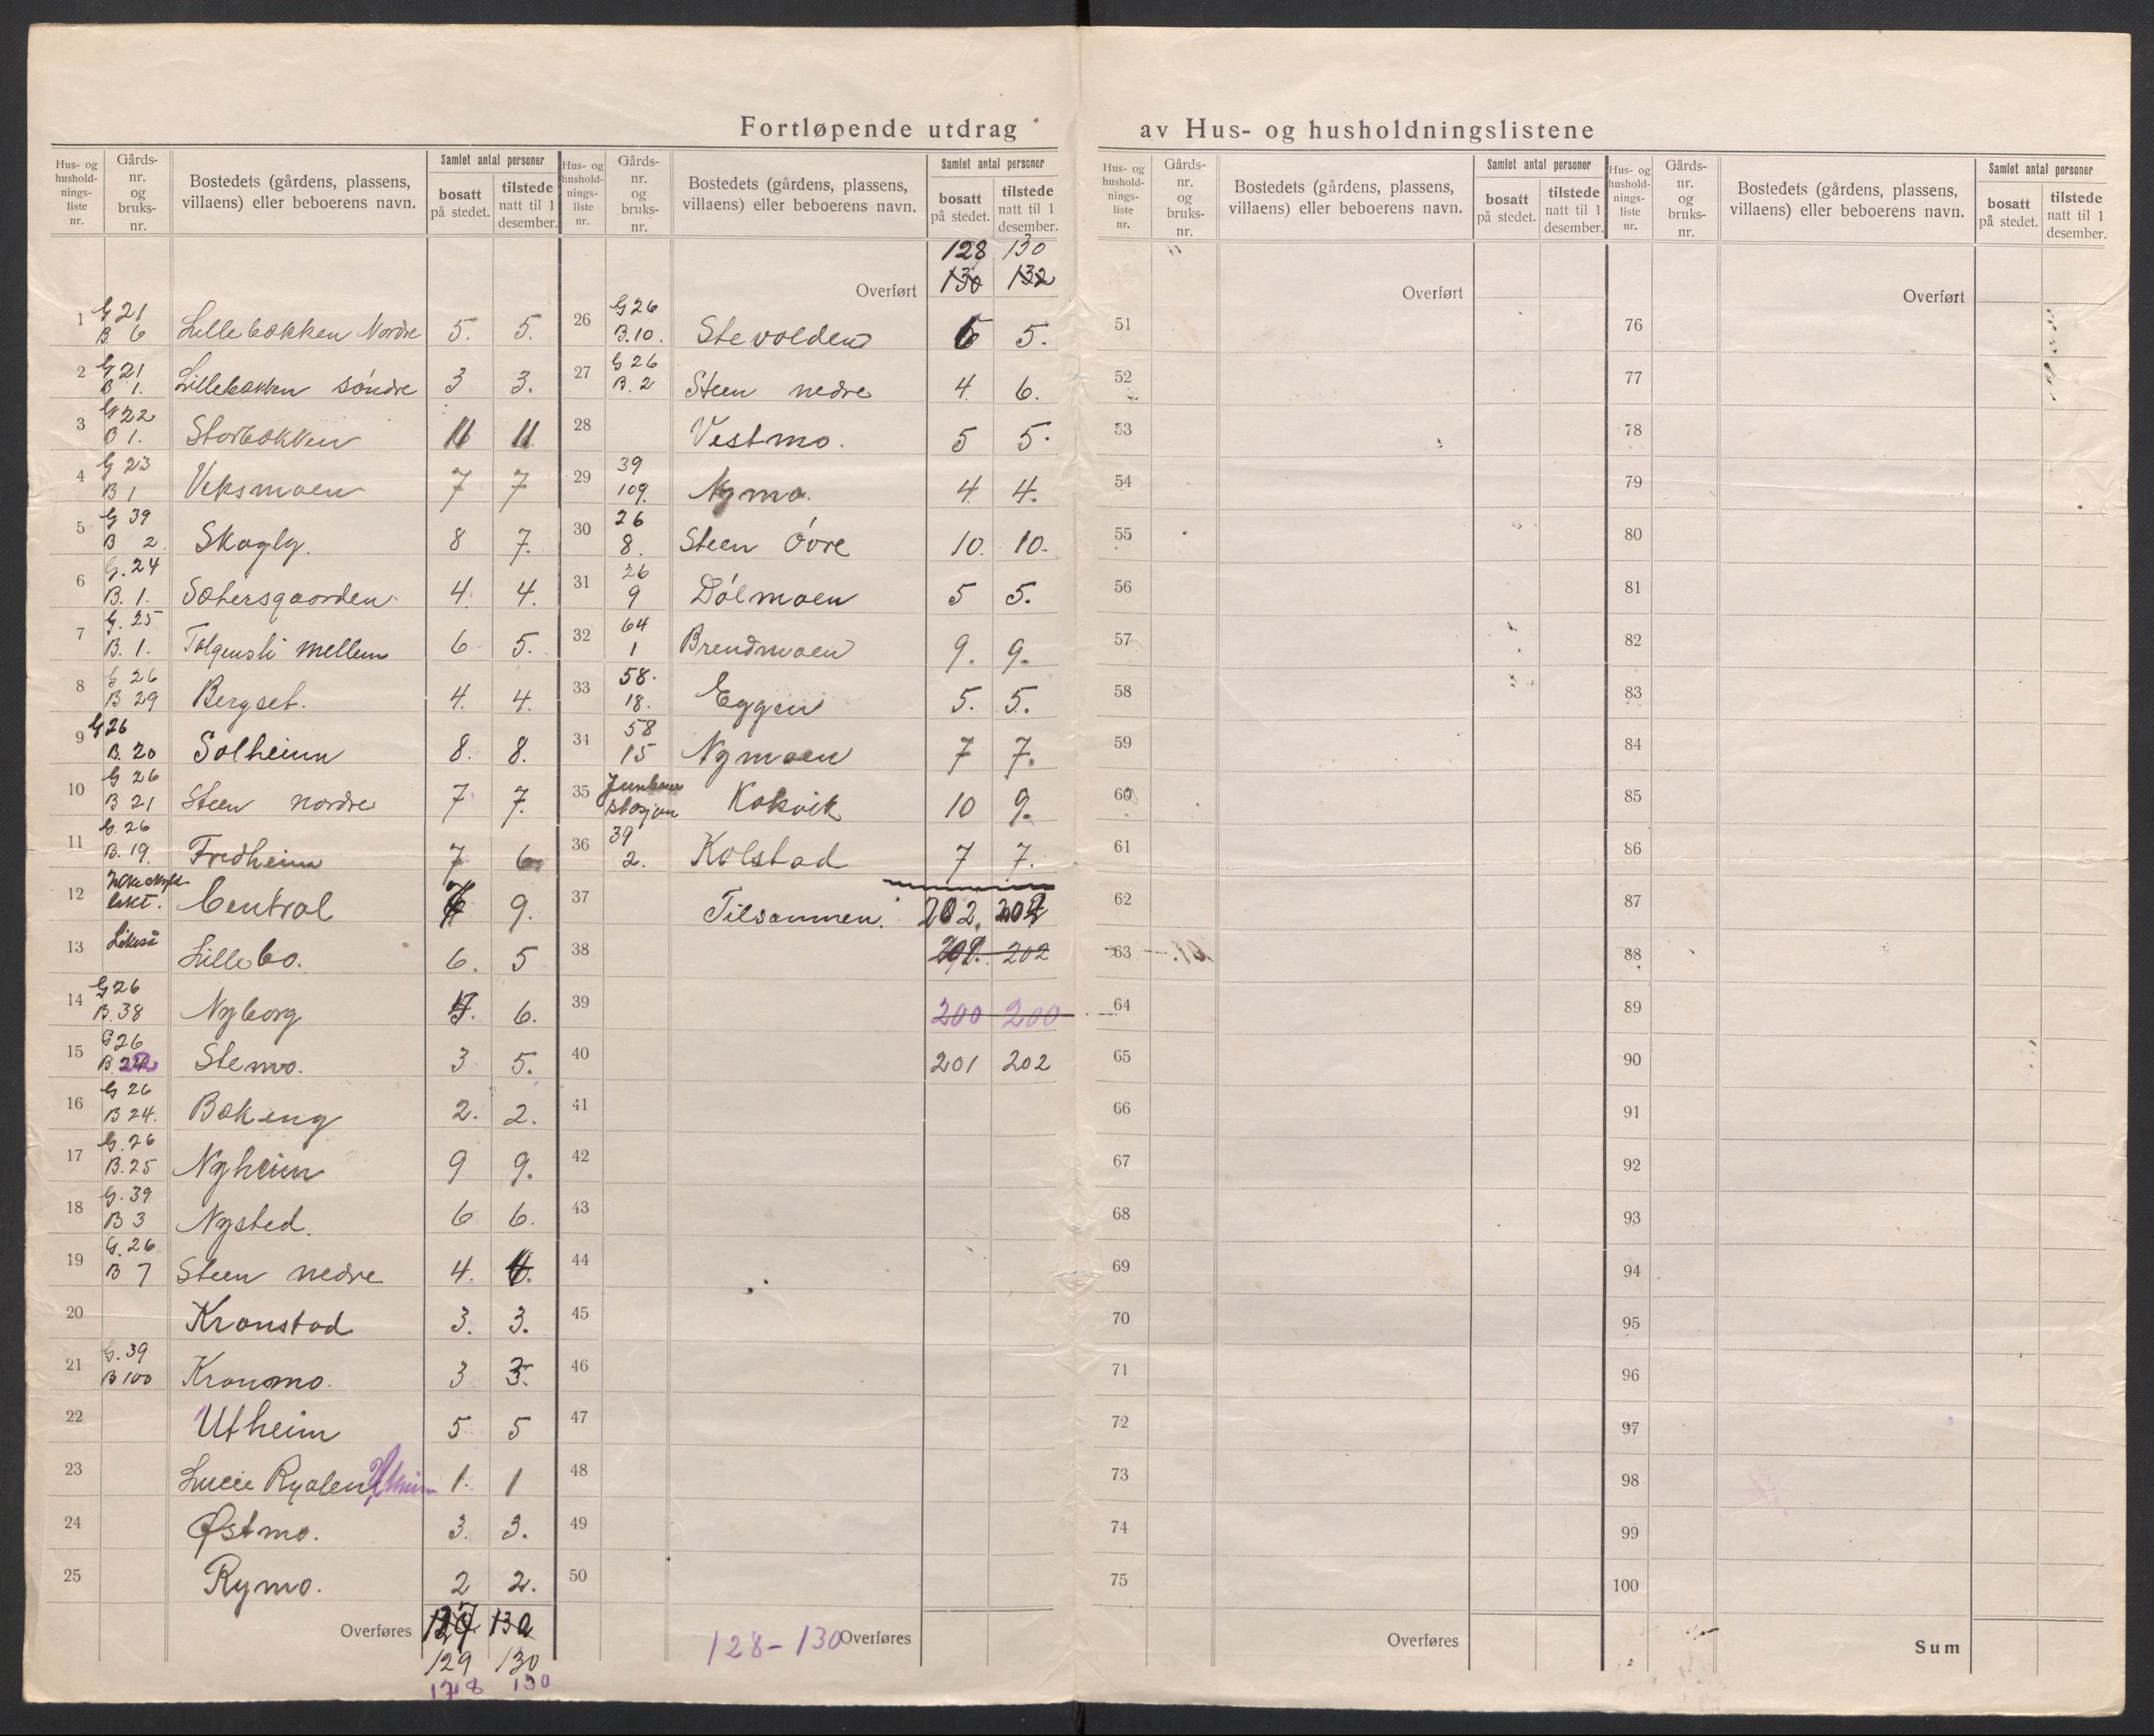 Fortløpende utdrag av Hus- og husholdningslistene
Hus- og hushold-nings-liste nr. Gårds-nr. og bruks-nr. Bostedets (gårdens, plassens, villaens) eller beboerens navn. Samlet antal personer bosatt på stedet. tilstede natt til 1 desember.
1 G 21 B. 6 Lillebækken Nordre 5. 5.
2 G 21 B 1. Lillebækken søndre 3 3.
3 G 22 B 1. Storbækken 11 11
4 G 23 B 1 Veksmoen 7 7
5 G 39 B 2. Skogly. 8 7.
6 G. 24 B. 1. Sætersgaarden 4. 4.
7 G. 25 B. 1. Tolgensli mellem 6 5.
8 G 26 B 29 Bergset. 4. 4.
9 G 26 B. 20 Solheim 8. 8.
10 G 26 B 21 Steen nordre 7 7.
11 G. 26 B. 19. Fredheim 7 6.
12 Central 9.
13 Lillebo. 6. 5
14 G 26 B. 38 Nyborg 6.
15 G 26 B. Stemo. 3 5.
16 G 26 B 24. Bækeng 2. 2.
17 G. 26 B. 25 Nyheim 9 9.
18 G. 39 B 3 Nysted. 6 6.
19 G. 26 B 7 Steen nedre 4.
20 Kronstad 3. 3.
21 G. 39 B 100 Kronmo. 3 3.
22 Utheim 5 5
23 Lucie Ryalen 1. 1
24 Østmo. 3. 3.
25 Rymo. 2 2.
Overføres 130
129 130
128 130
Hus- og hushold-nings-liste nr. Gårds-nr. og bruks-nr. Bostedets (gårdens, plassens, villaens) eller beboerens navn. Samlet antal personer bosatt på stedet. tilstede natt til 1 desember.
128 130
Overført 130 132
26 G 26 B. 10. Stevolden 5.
27 G 26 B. 2 Steen nedre 4. 6.
28 Vestmo. 5 5.
29 39 109. Nymo. 4 4.
30 26 8. Steen Øvre 10. 10.
31 26 9 Dølmoen 5 5.
32 64 1 Brendmoen 9. 9.
33 58. 18. Eggen 5. 5.
34 58 15 Nymoen 7 7.
35 stasjon Kokvik 10 9.
36 39 2. Kolstad 7 7.
37 Tilsammen. 202.
38 202
39 200 200
40 201 202
41
42
43
44
45
46
47
48
49
50
128-130 Overføres
Hus- og hushold-nings-liste nr. Gårds-nr. og bruks-nr. Bostedets (gårdens, plassens, villaens) eller beboerens navn. Samlet antal personer bosatt på stedet. tilstede natt til 1 desember.
Overført
51
52
53
54
55
56
57
58
59
60
61
62
63
64
65
66
67
68
69
70
71
72
73
74
75
Overføres
Hus- og hushold-nings-liste nr. Gårds-nr. og bruks-nr. Bostedets (gårdens, plassens, villaens) eller beboerens navn. Samlet antal personer bosatt på stedet. tilstede natt til 1 desember.
Overført
76
77
78
79
80
81
82
83
84
85
86
87
88
89
90
91
92
93
94
95
96
97
98
99
100
Sum